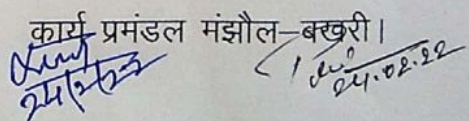 कार्य प्रमंडल मंझौल–बखरी।
24/2/22
24.02.22